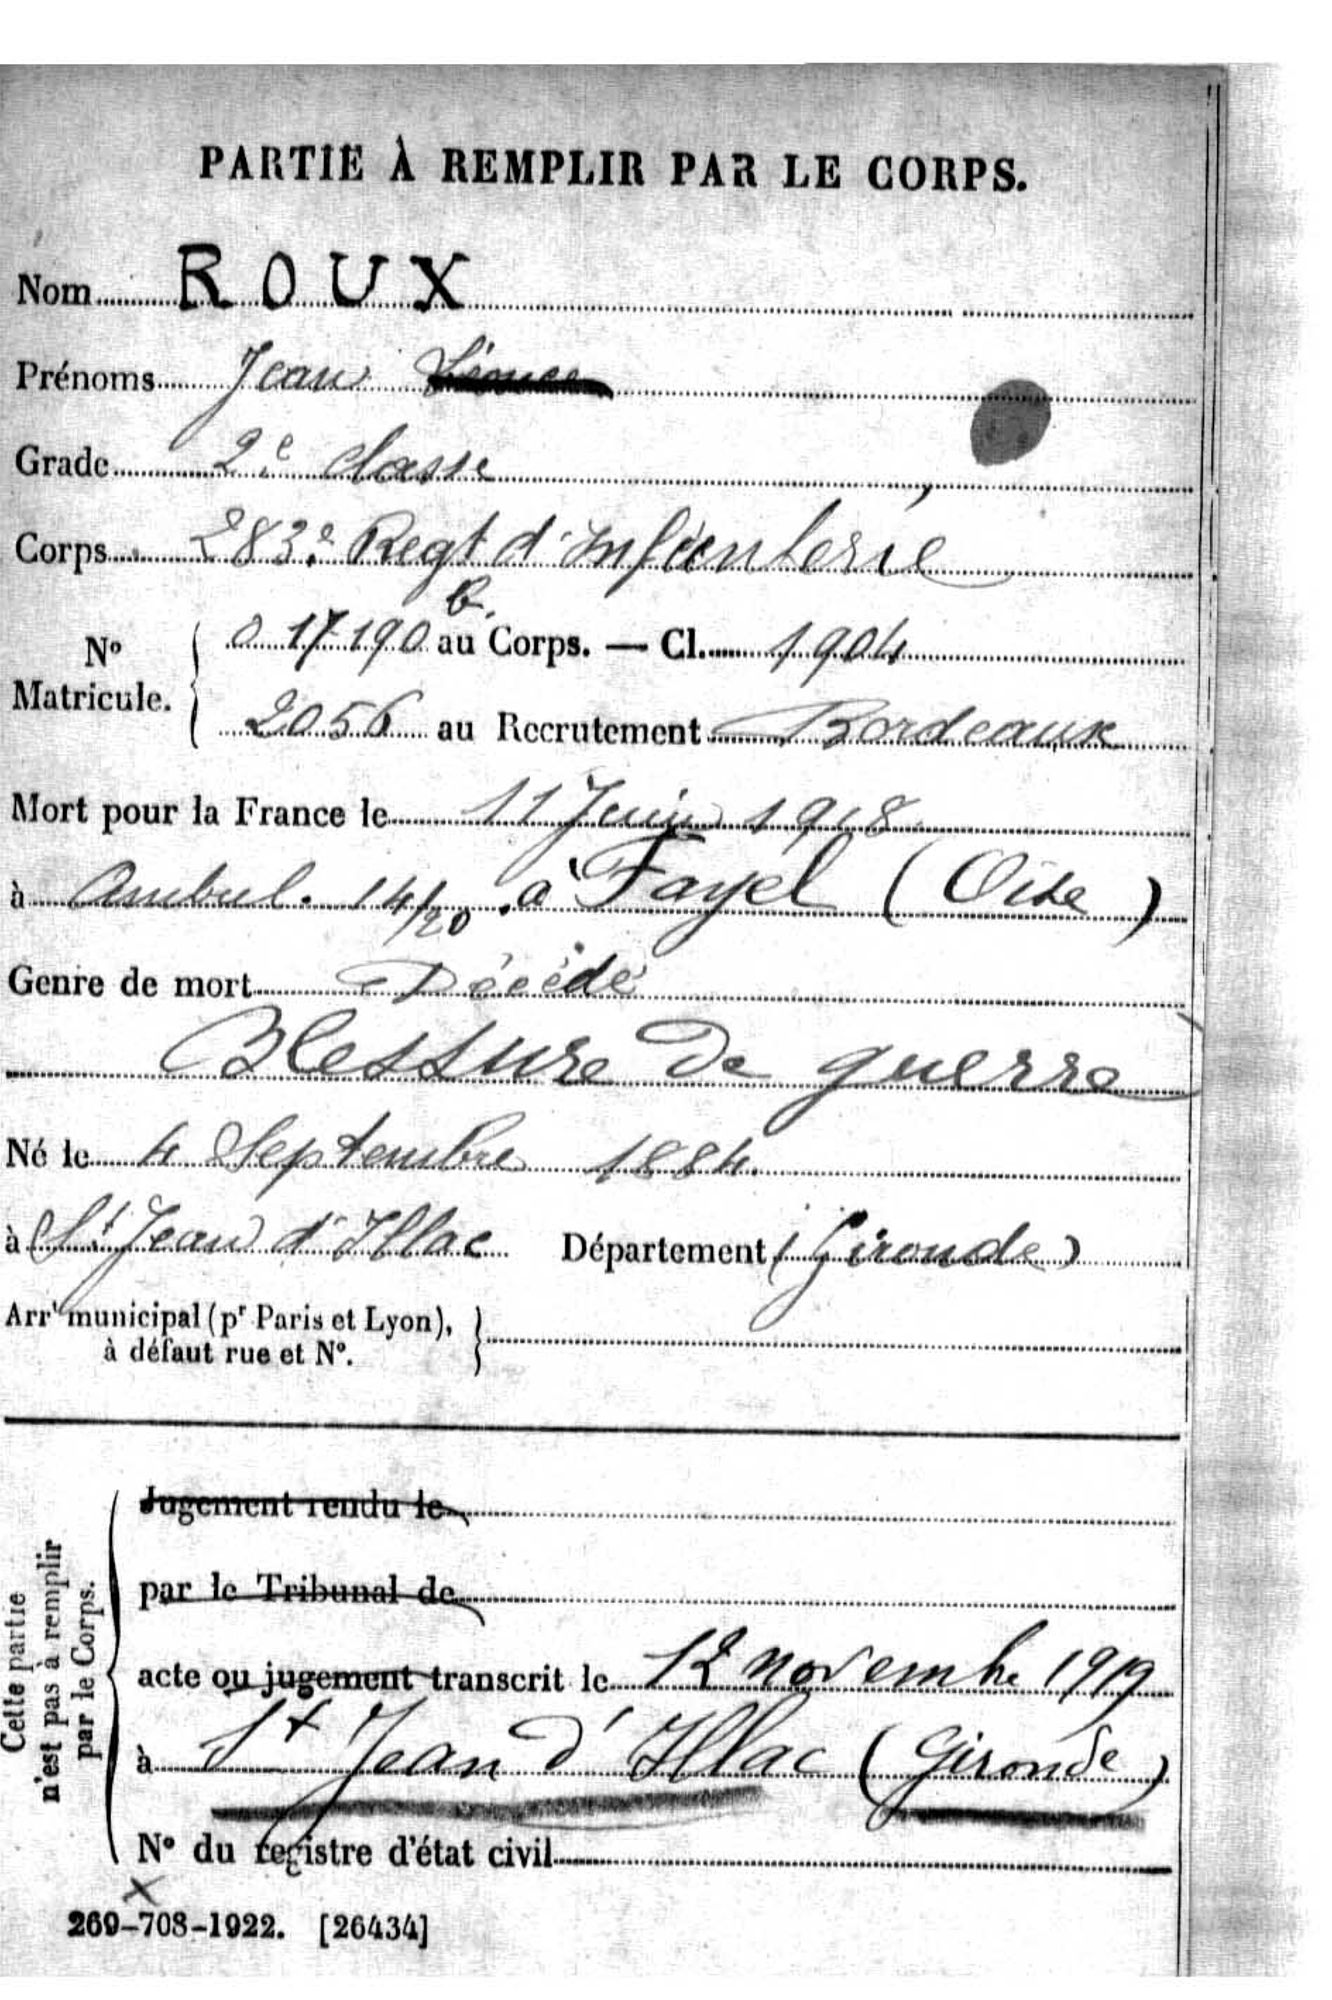 PARTIE À REMPLIR PAR LE CORPS.
Nom ROUX
Prénoms Jean
Grade 2e classe
Corps 283e Regt d'Infanterie
No Matricule. 017190 au Corps. — Cl. 1904
2056 au Recrutement Bordeaux
Mort pour la France le 11 Juin 1918
à Ambul. 14/20 à Fayel (Oise)
Genre de mort Décédé
Blessure de guerre
Né le 4 Septembre 1884
à St Jean d'Illac Département (Gironde)
Arrt municipal (pr Paris et Lyon),
à défaut rue et No.
Cette partie
n'est pas à remplir
par le Corps.
Jugement rendu le
par le Tribunal de
acte ou jugement transcrit le 12 novembre 1919
à St Jean d'Illac (Gironde)
No du registre d'état civil
269-708-1922. [26434]